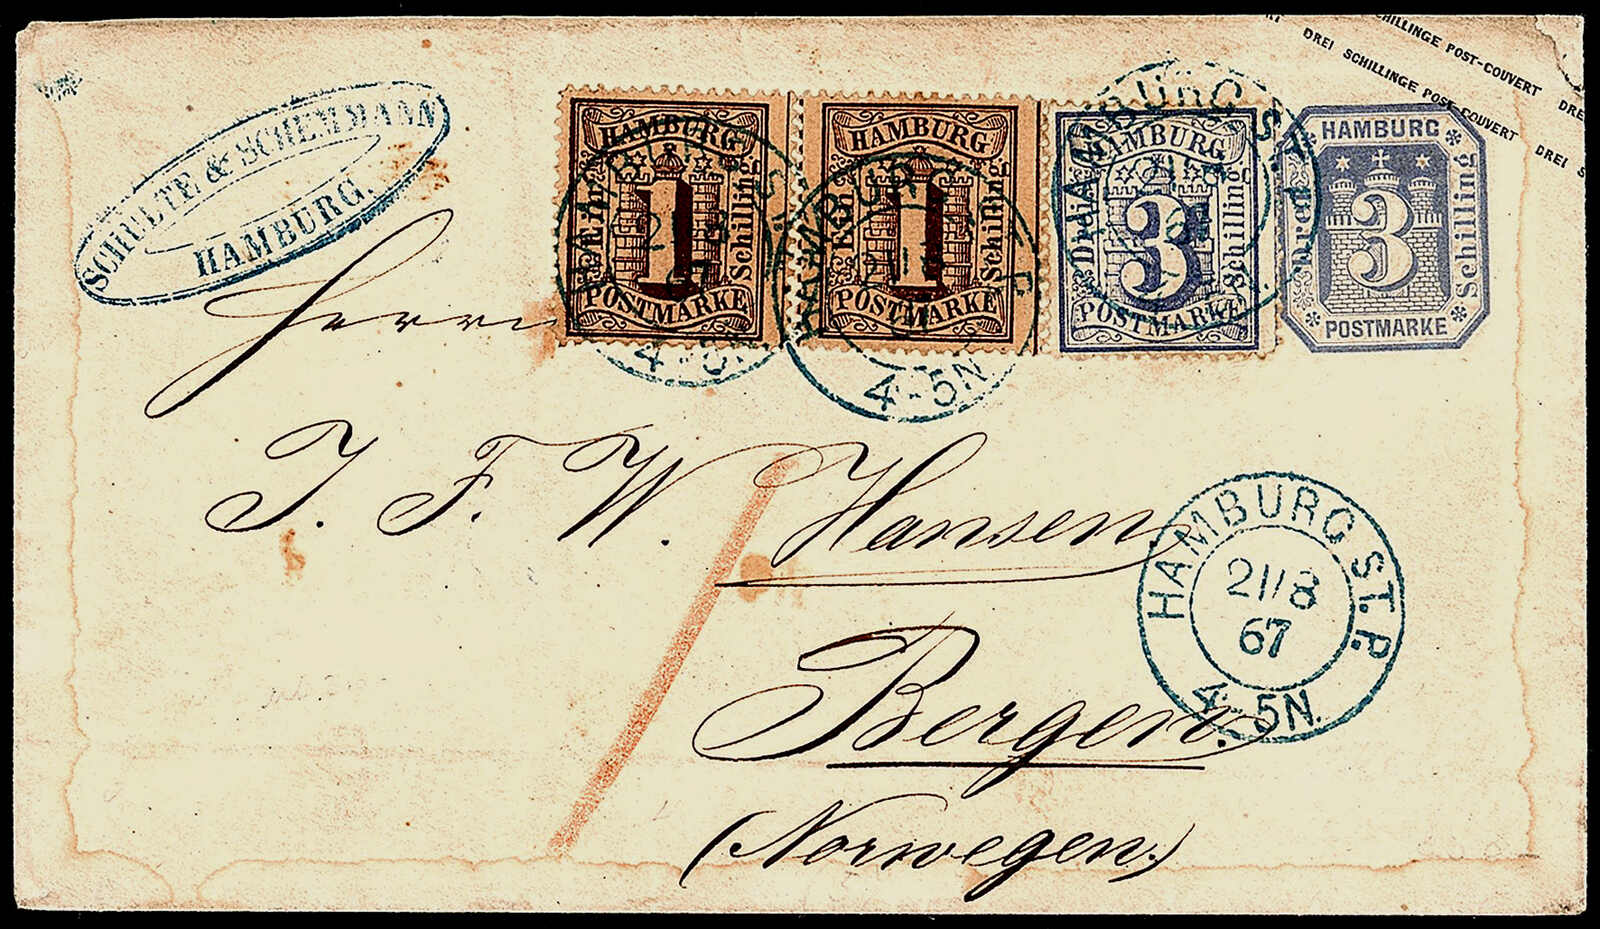 SCHILLINGE POST-COUVERT DREI
DREI SCHILLINGE POST-COUVERT DREI S
SCHULTE & SCHEMMANN
HAMBURG.
HAMBURG
Ein
1
Schilling
POSTMARKE
HAMBURG
Ein
1
Schilling
POSTMARKE
HAMBURG
Drei
3
Schilling
POSTMARKE
HAMBURG
Drei
3
Schilling
POSTMARKE
HAMBURG ST. P.
4-5N.
HAMBURG ST. P.
4-5N.
HAMBURG ST. P.
Herrn
J. F. W. Hansen,
Bergen.
(Norwegen.)
HAMBURG ST. P.
21/8
67
4-5N.